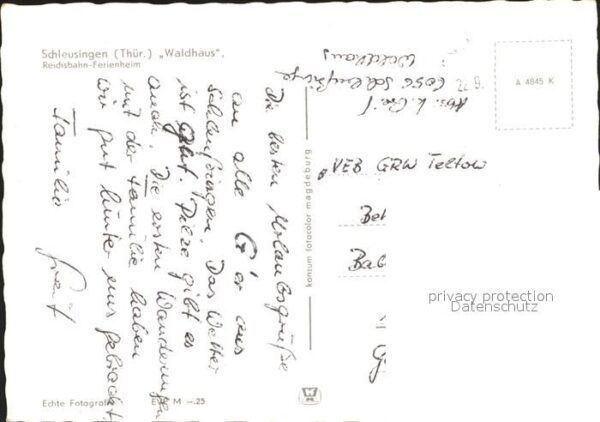 Schleusingen (Thür.) „Waldhaus",
Reichsbahn-Ferienheim
Die besten Urlaubsgrüße
an alle G'er aus
Schleusingen. Das Wetter
ist gut. Pilze gibt es
auch. Die ersten Wanderungen
mit der Familie haben
wir gut hinter uns gebracht.
Familie
Echte Fotografie
EVP M –.25
konsum fotocolor magdeburg
Abs. K.
6056 Schleusingen
Waldhaus
22.9.
A 4845 K
VEB GRW Teltow
Bet
Bab
privacy protection
Datenschutz